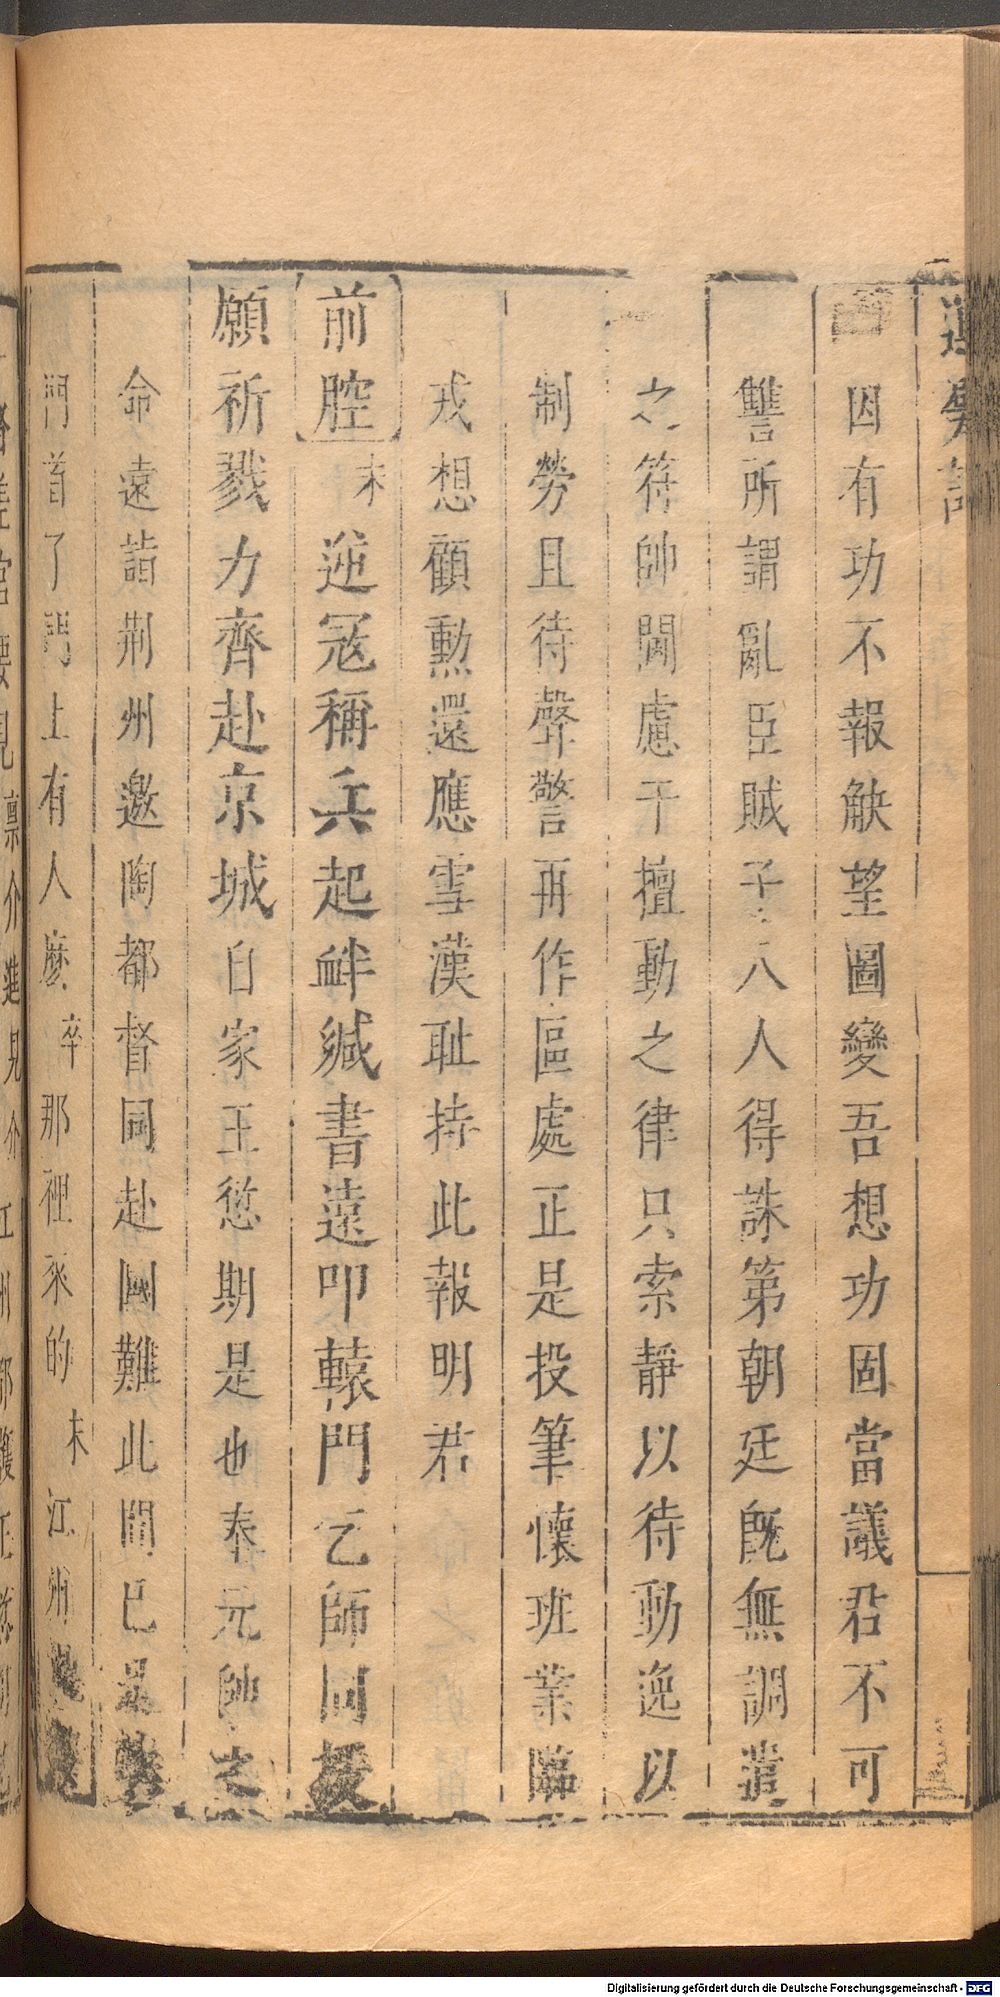 運甓記
因有功不報觖望圖變吾想功固當議君不可
讐所謂亂臣賊子人人得誅第朝廷旣無調遣
之符帥閫慮干擅動之律只索靜以待動逸以
制勞且待聲警再作區處正是投筆懷班業臨
戎想顧勳還應雪漢耻持此報明君
前腔 末 逆寇稱兵起衅緘書遠叩轅門乞師同援
願祈戮力齊赴京城自家王愆期是也奉元帥之
命遠詣荆州邀陶都督同赴國難此間已是
門首了門上有人麽 卒 那裡來的 末 江州
稟介進見介 江州都護王愆期
Digitalisierung gefördert durch die Deutsche Forschungsgemeinschaft - DFG